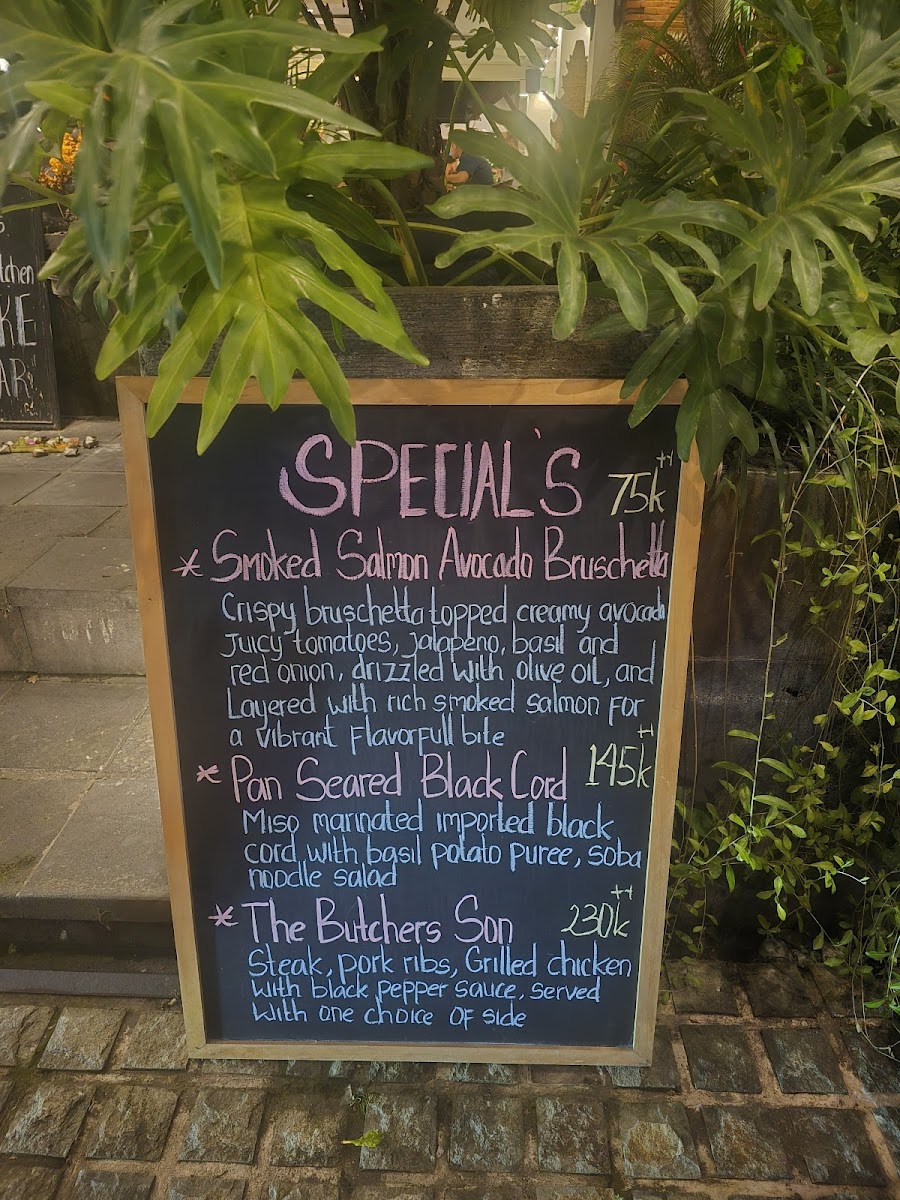 tchen
KE
AR
SPECIAL'S
75k++
* Smoked Salmon Avocado Bruschetta
Crispy bruschetta topped creamy avocado
Juicy tomatoes, jalapeno, basil and
red onion, drizzled with olive oil, and
Layered with rich smoked salmon for
a vibrant flavorfull bite
* Pan Seared Black Cord 145k++
Miso marinated imported black
cord with basil potato puree, soba
noodle salad
* The Butchers Son 230k++
Steak, pork ribs, Grilled chicken
with black pepper sauce, served
with one choice of side